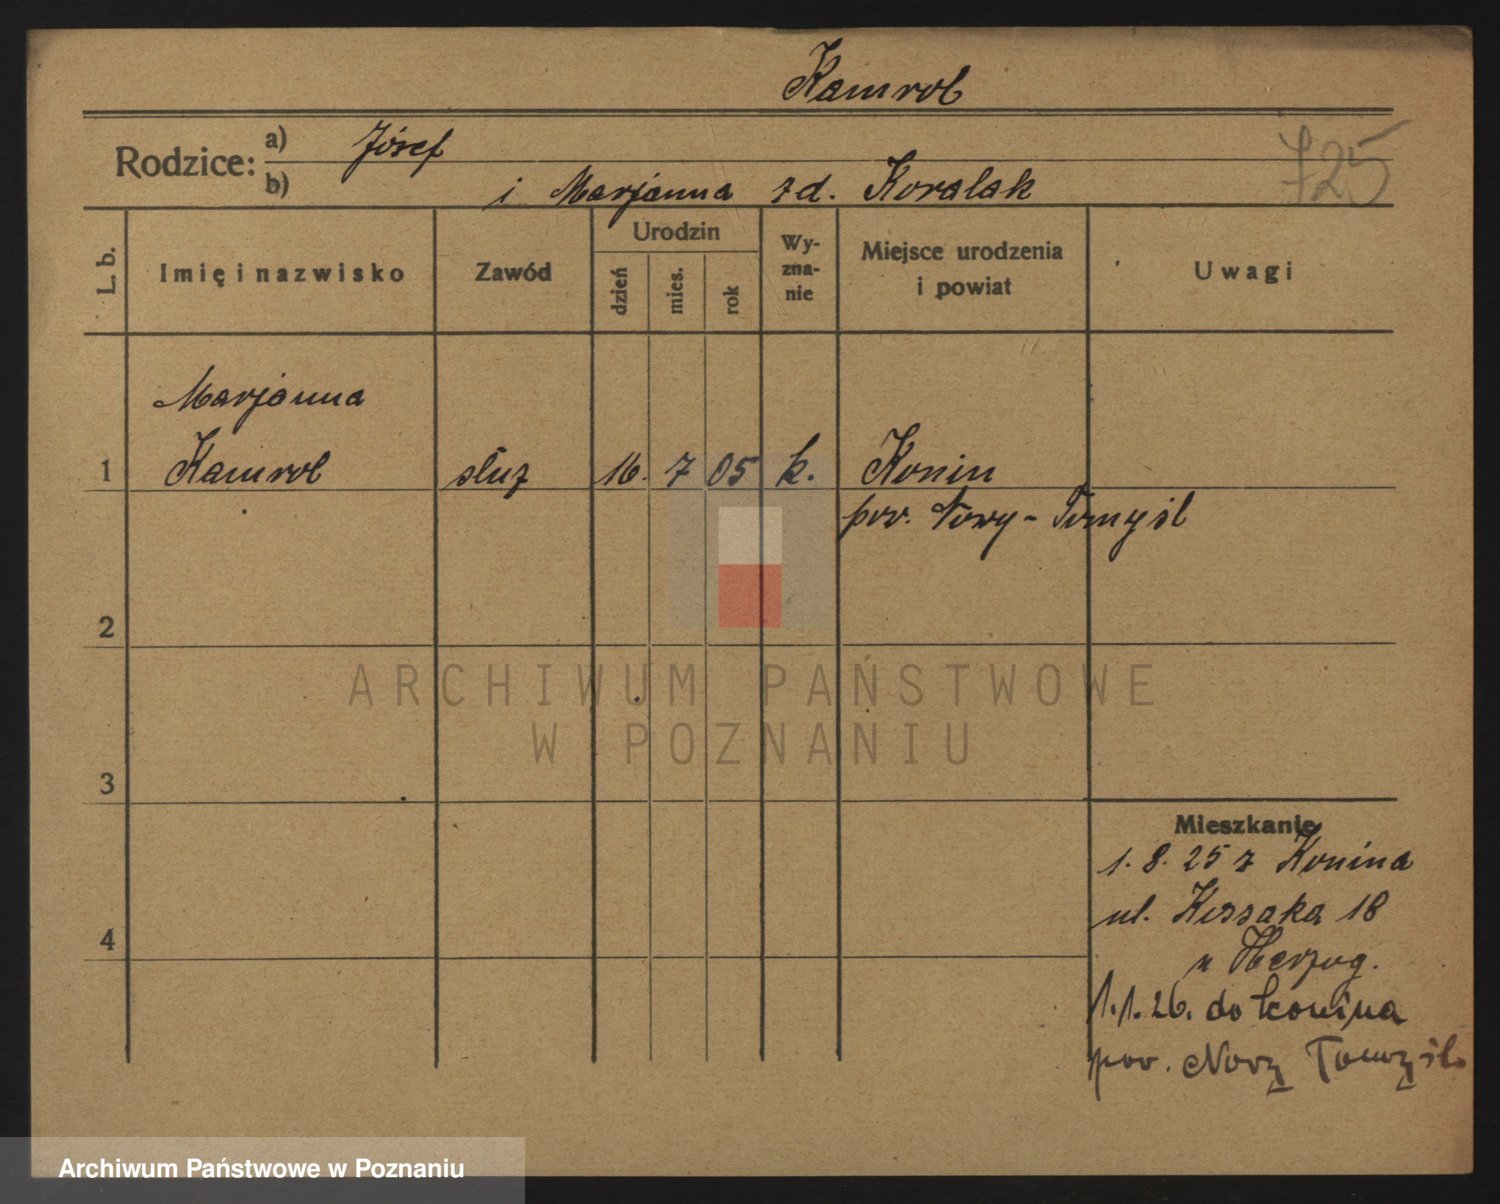 Kamrob
Rodzice:
a) Józef
b) i Marjanna zd. Kovalak
725
L. b.
Imię i nazwisko
Zawód
Urodzin
dzień
mies.
rok
Wy-
zna-
nie
Miejsce urodzenia
i powiat
Uwagi
Marjanna
1 Kamrob służ 16. 7 05 k. Konin
pow. Nowy-Tomyśl
2
3
4
Mieszkanie
1. 8. 25 z Konina
ul. Kossaka 18
u Herzog.
1.1.26. do Konina
pow. Nowy Tomyśl.
ARCHIWUM PAŃSTWOWE
W POZNANIU
Archiwum Państwowe w Poznaniu